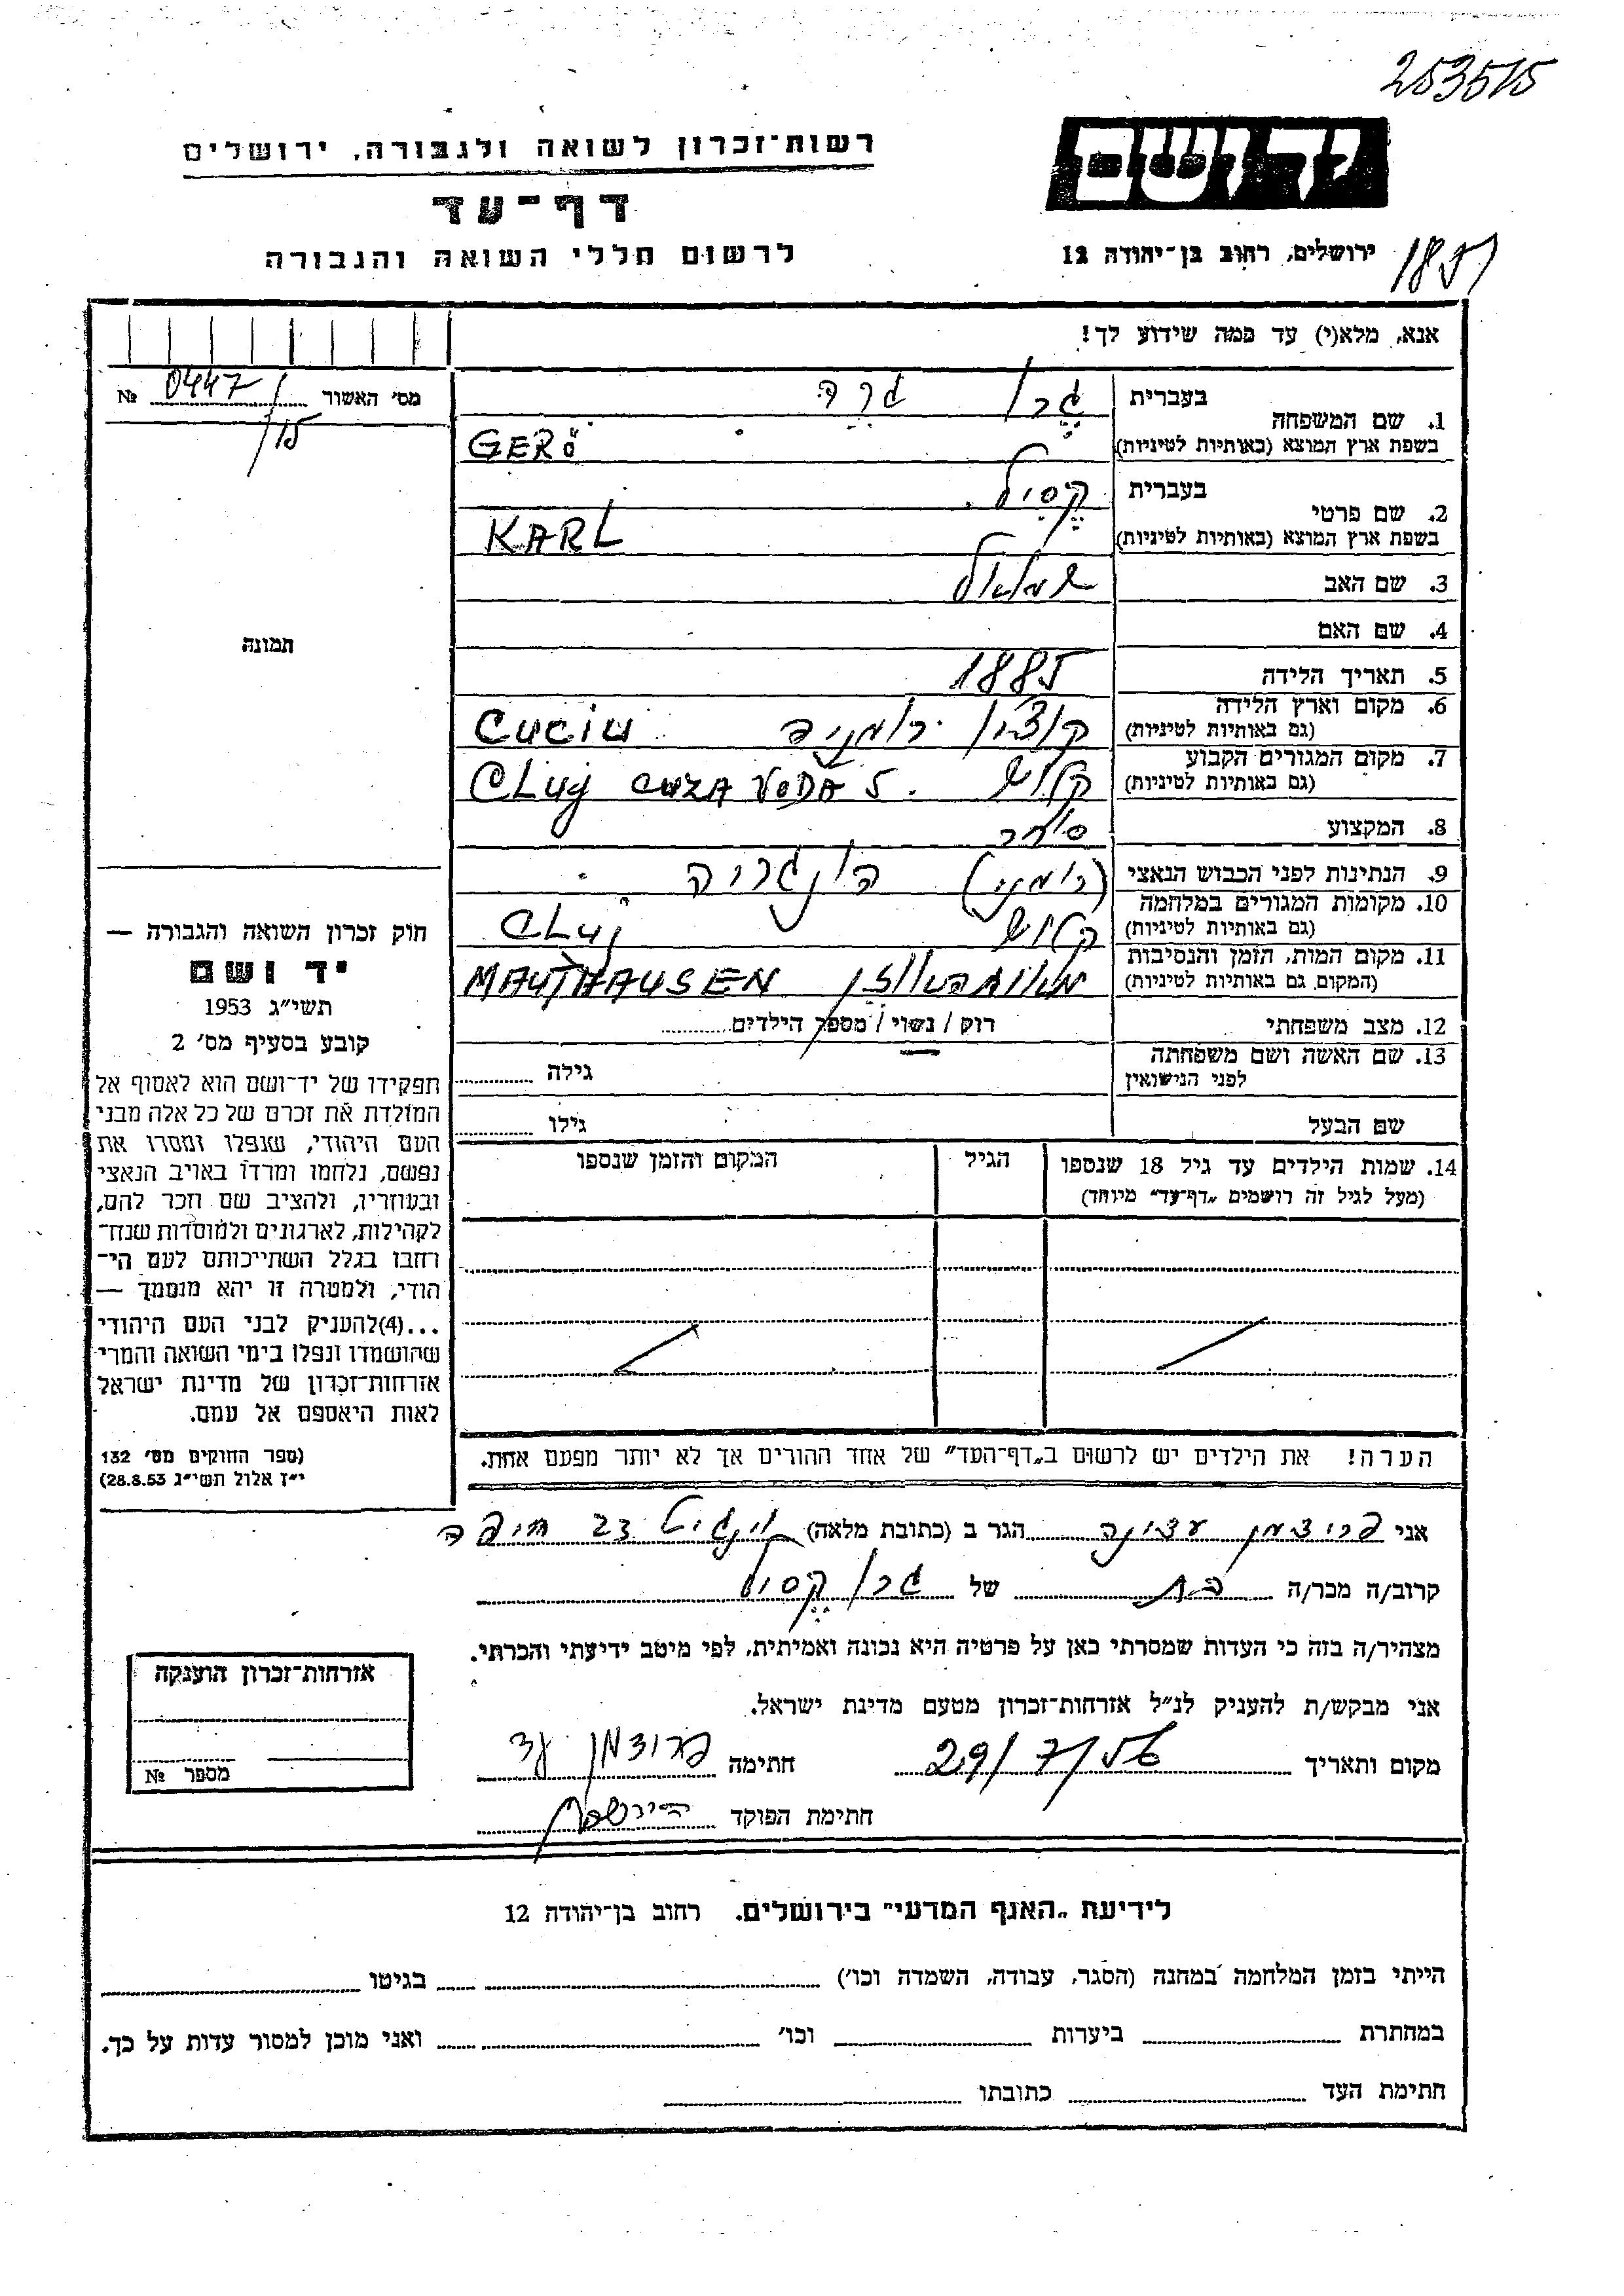 253515
יד ושם
רשות־זכרון לשואה ולגבורה, ירושלים
דף־עד
לרשום חללי השואה והגבורה
ירושלים, רחוב בן־יהודה 12
אנא, מלא(י) עד כמה שידוע לך!
מס׳ האשור 0447/15 №
1. שם המשפחה
בעברית גרו גרה
בשפת ארץ המוצא (באותיות לטיניות) GERÖ
2. שם פרטי
בעברית
בשפת ארץ המוצא (באותיות לטיניות) KARL
3. שם האב שמואל
4. שם האם
5. תאריך הלידה 1885
6. מקום וארץ הלידה
(גם באותיות לטיניות) רומניה CUCIU
7. מקום המגורים הקבוע
(גם באותיות לטיניות) קלוש CLUj CUZA VODA 5.
8. המקצוע סוחר
9. הנתינות לפני הכבוש הנאצי (רומני) הונגריה
10. מקומות המגורים במלחמה
(גם באותיות לטיניות) קלוש CLUj
11. מקום המות, הזמן והנסיבות
(המקום גם באותיות לטיניות) MAUTHAUSEN
12. מצב משפחתי רוק / נשוי / מספר הילדים
13. שם האשה ושם משפחתה
לפני הנישואין גילה
שם הבעל גילו
14. שמות הילדים עד גיל 18 שנספו הגיל המקום והזמן שנספו
(מעל לגיל זה רושמים „דף־עד״ מיוחד)
הערה! את הילדים יש לרשום ב„דף־העד״ של אחד ההורים אך לא יותר מפעם אחת.
תמונה
חוק זכרון השואה והגבורה —
יד ושם
תשי״ג 1953
קובע בסעיף מס׳ 2
תפקידו של יד־ושם הוא לאסוף אל
המולדת את זכרם של כל אלה מבני
העם היהודי, שנפלו ומסרו את
נפשם, נלחמו ומרדו באויב הנאצי
ובעוזריו, ולהציב שם וזכר להם,
לקהילות, לארגונים ולמוסדות שנח־
רחבו בגלל השתייכותם לעם הי־
הודי, ולמטרה זו יהא מוסמך —
...(4)להעניק לבני העם היהודי
שהושמדו ונפלו בימי השואה והמרי
אזרחות־זכרון של מדינת ישראל
לאות היאספם אל עמם.
(ספר החוקים מס׳ 132
י״ז אלול תשי״ג 28.8.53)
אני פרוצמן עדינה הגר ב (כתובת מלאה) 23 חיפה
קרוב/ה מכר/ה בת של גרו
מצהיר/ה בזה כי העדות שמסרתי כאן על פרטיה היא נכונה ואמיתית, לפי מיטב ידיעתי והכרתי.
אני מבקש/ת להעניק לנ״ל אזרחות־זכרון מטעם מדינת ישראל.
מקום ותאריך 29/7/56 חתימה פרוצמן עד
חתימת הפוקד
אזרחות־זכרון הוענקה
מספר №
לידיעת „האגף המדעי״ בירושלים. רחוב בן־יהודה 12
הייתי בזמן המלחמה במחנה (הסגר, עבודה, השמדה וכו׳) בגיטו
במחתרת ביערות וכו׳ ואני מוכן למסור עדות על כך.
חתימת העד כתובתו